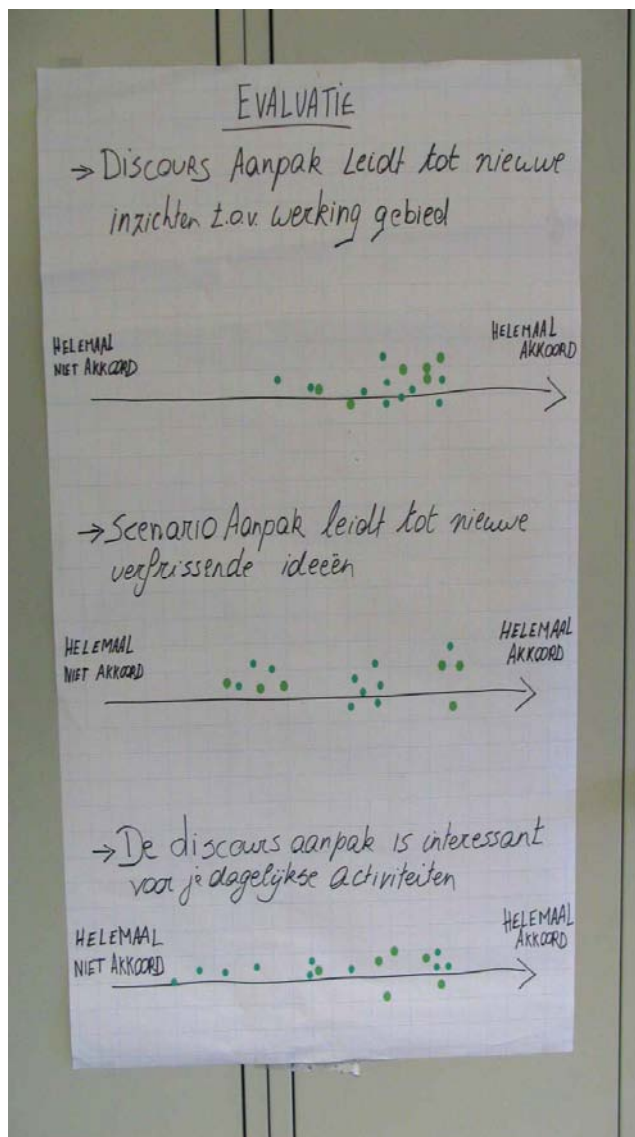 EVALUATIE
→ DISCOURS AANPAK LEIDT tot nieuwe
inzichten t.o.v. werking gebied
HELEMAAL
NIET AKKOORD
HELEMAAL
AKKOORD
→ SCENARIO AANPAK leidt tot nieuwe
verfrissende ideeën
HELEMAAL
NIET AKKOORD
HELEMAAL
AKKOORD
→ De discours aanpak is interessant
voor je dagelijkse activiteiten
HELEMAAL
NIET AKKOORD
HELEMAAL
AKKOORD